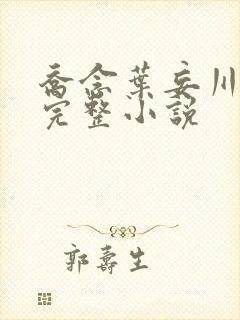 喬念葉妄川
完整小說
郭壽生